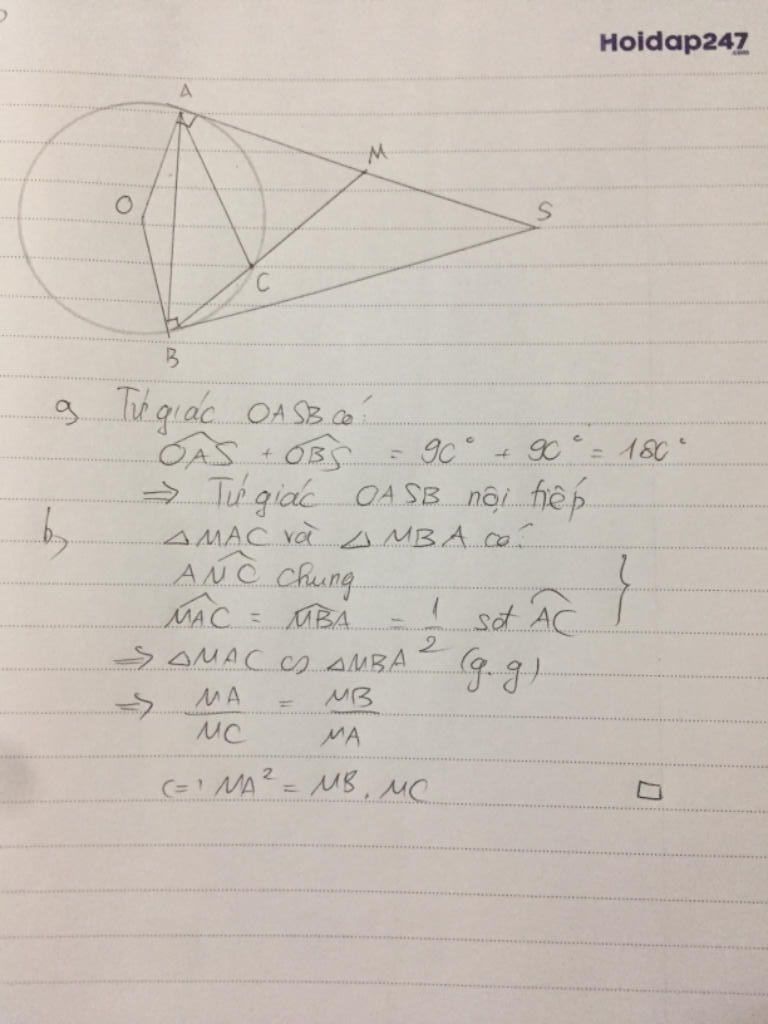 Hoidap247
.com
A
M
O
S
C
B
a, Tứ giác OASB có:
OAS + OBS = 90° + 90° = 180°
=> Tứ giác OASB nội tiếp
b, △MAC và △MBA có:
AMC chung
MAC = MBA = 1/2 sđt AC }
=> △MAC ∽ △MBA (g.g)
=> MA/MC = MB/MA
<=> MA² = MB.MC □